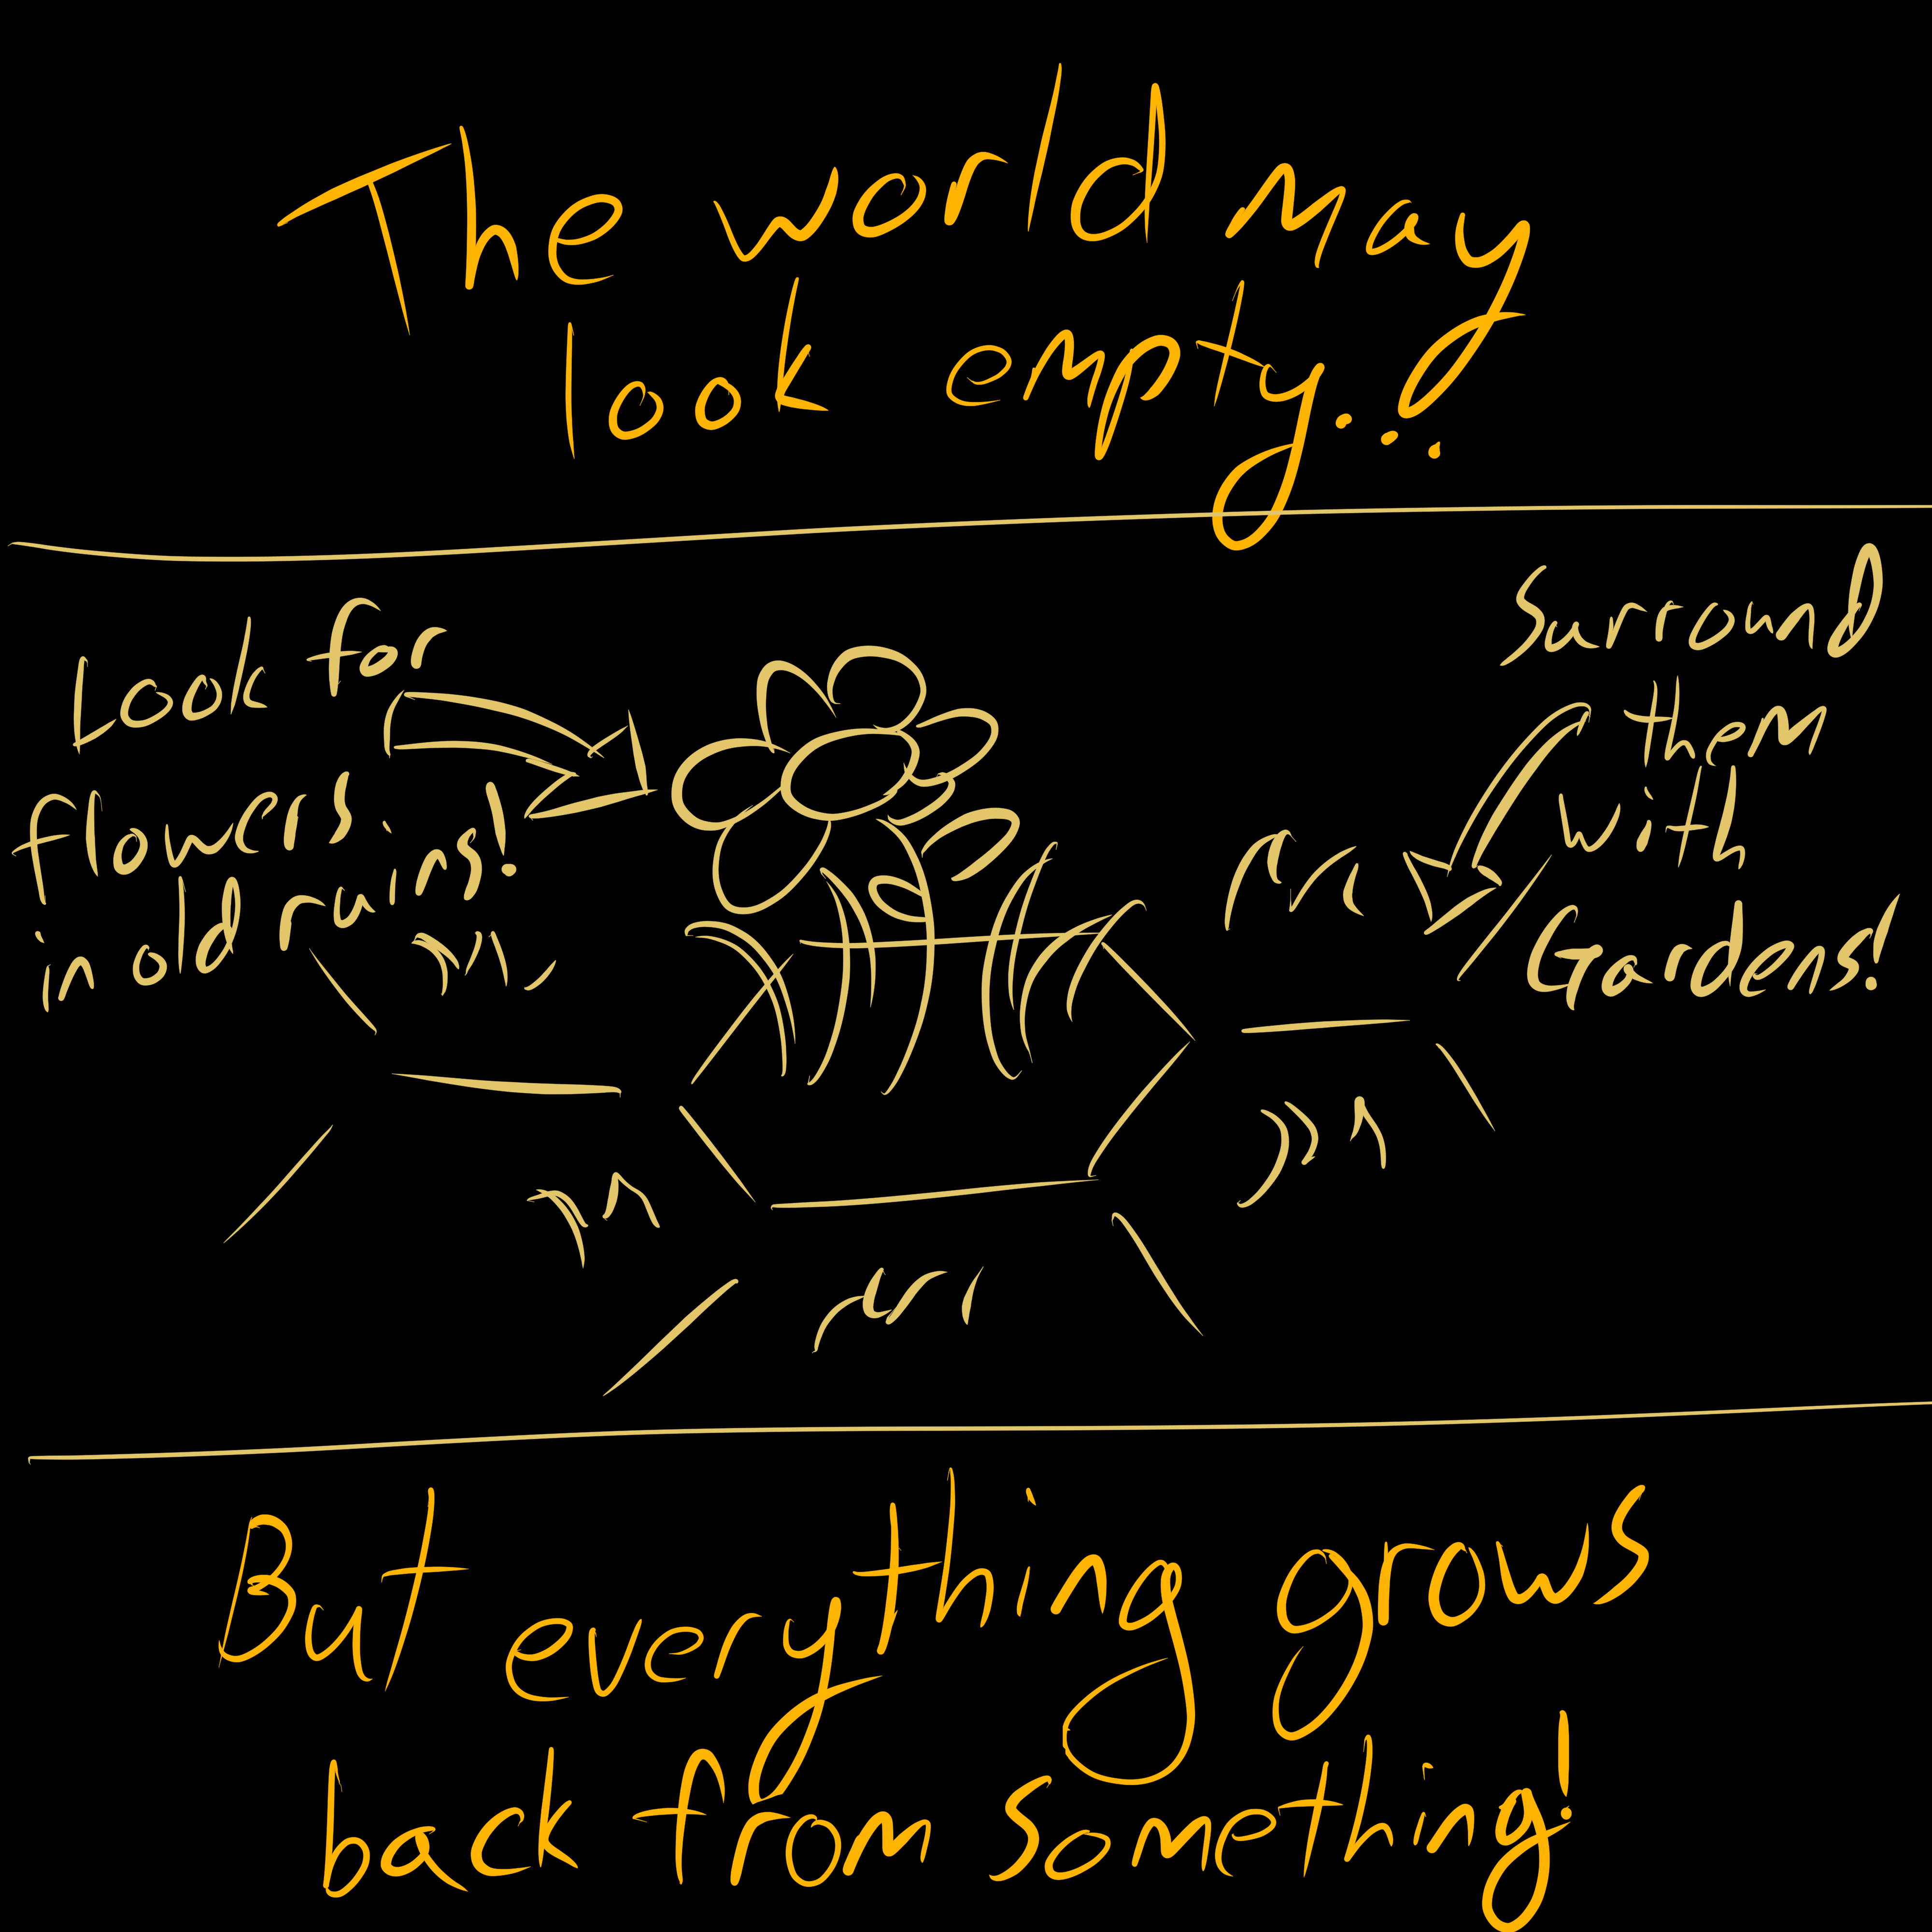 The world may
look empty...
Look for
flowers in
in old ruins!
Surround
them
with
Gardens!
But everything grows
back from something!